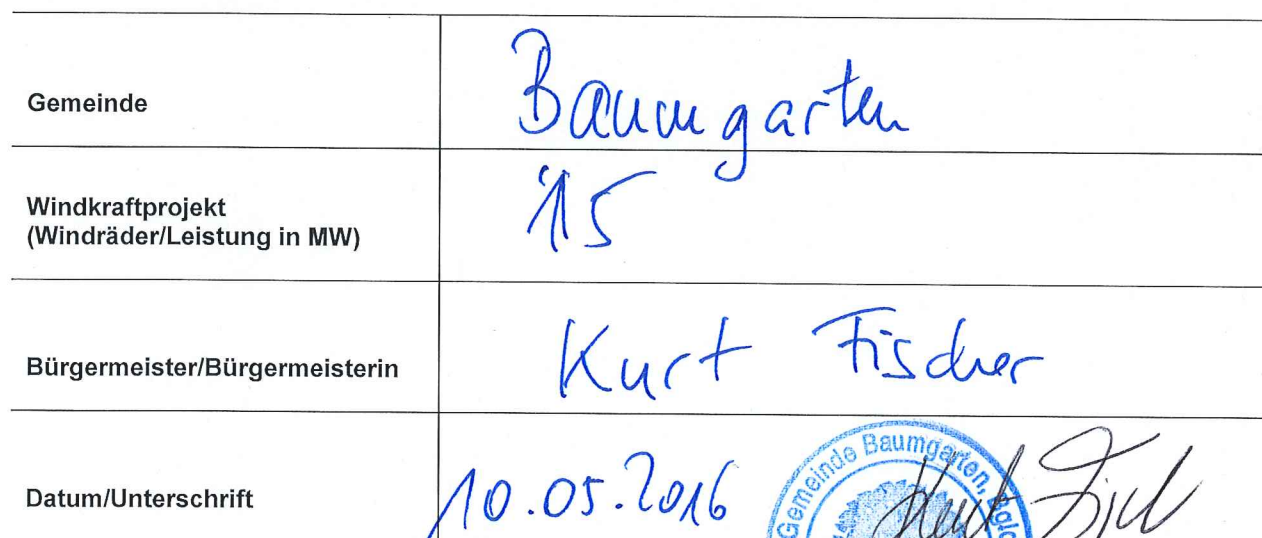 Gemeinde
Baumgarten
Windkraftprojekt
(Windräder/Leistung in MW)
15
Bürgermeister/Bürgermeisterin
Kurt Fischer
Datum/Unterschrift
10.05.2016
Gemeinde Baumgarten, Bgld
Kurt Fisch